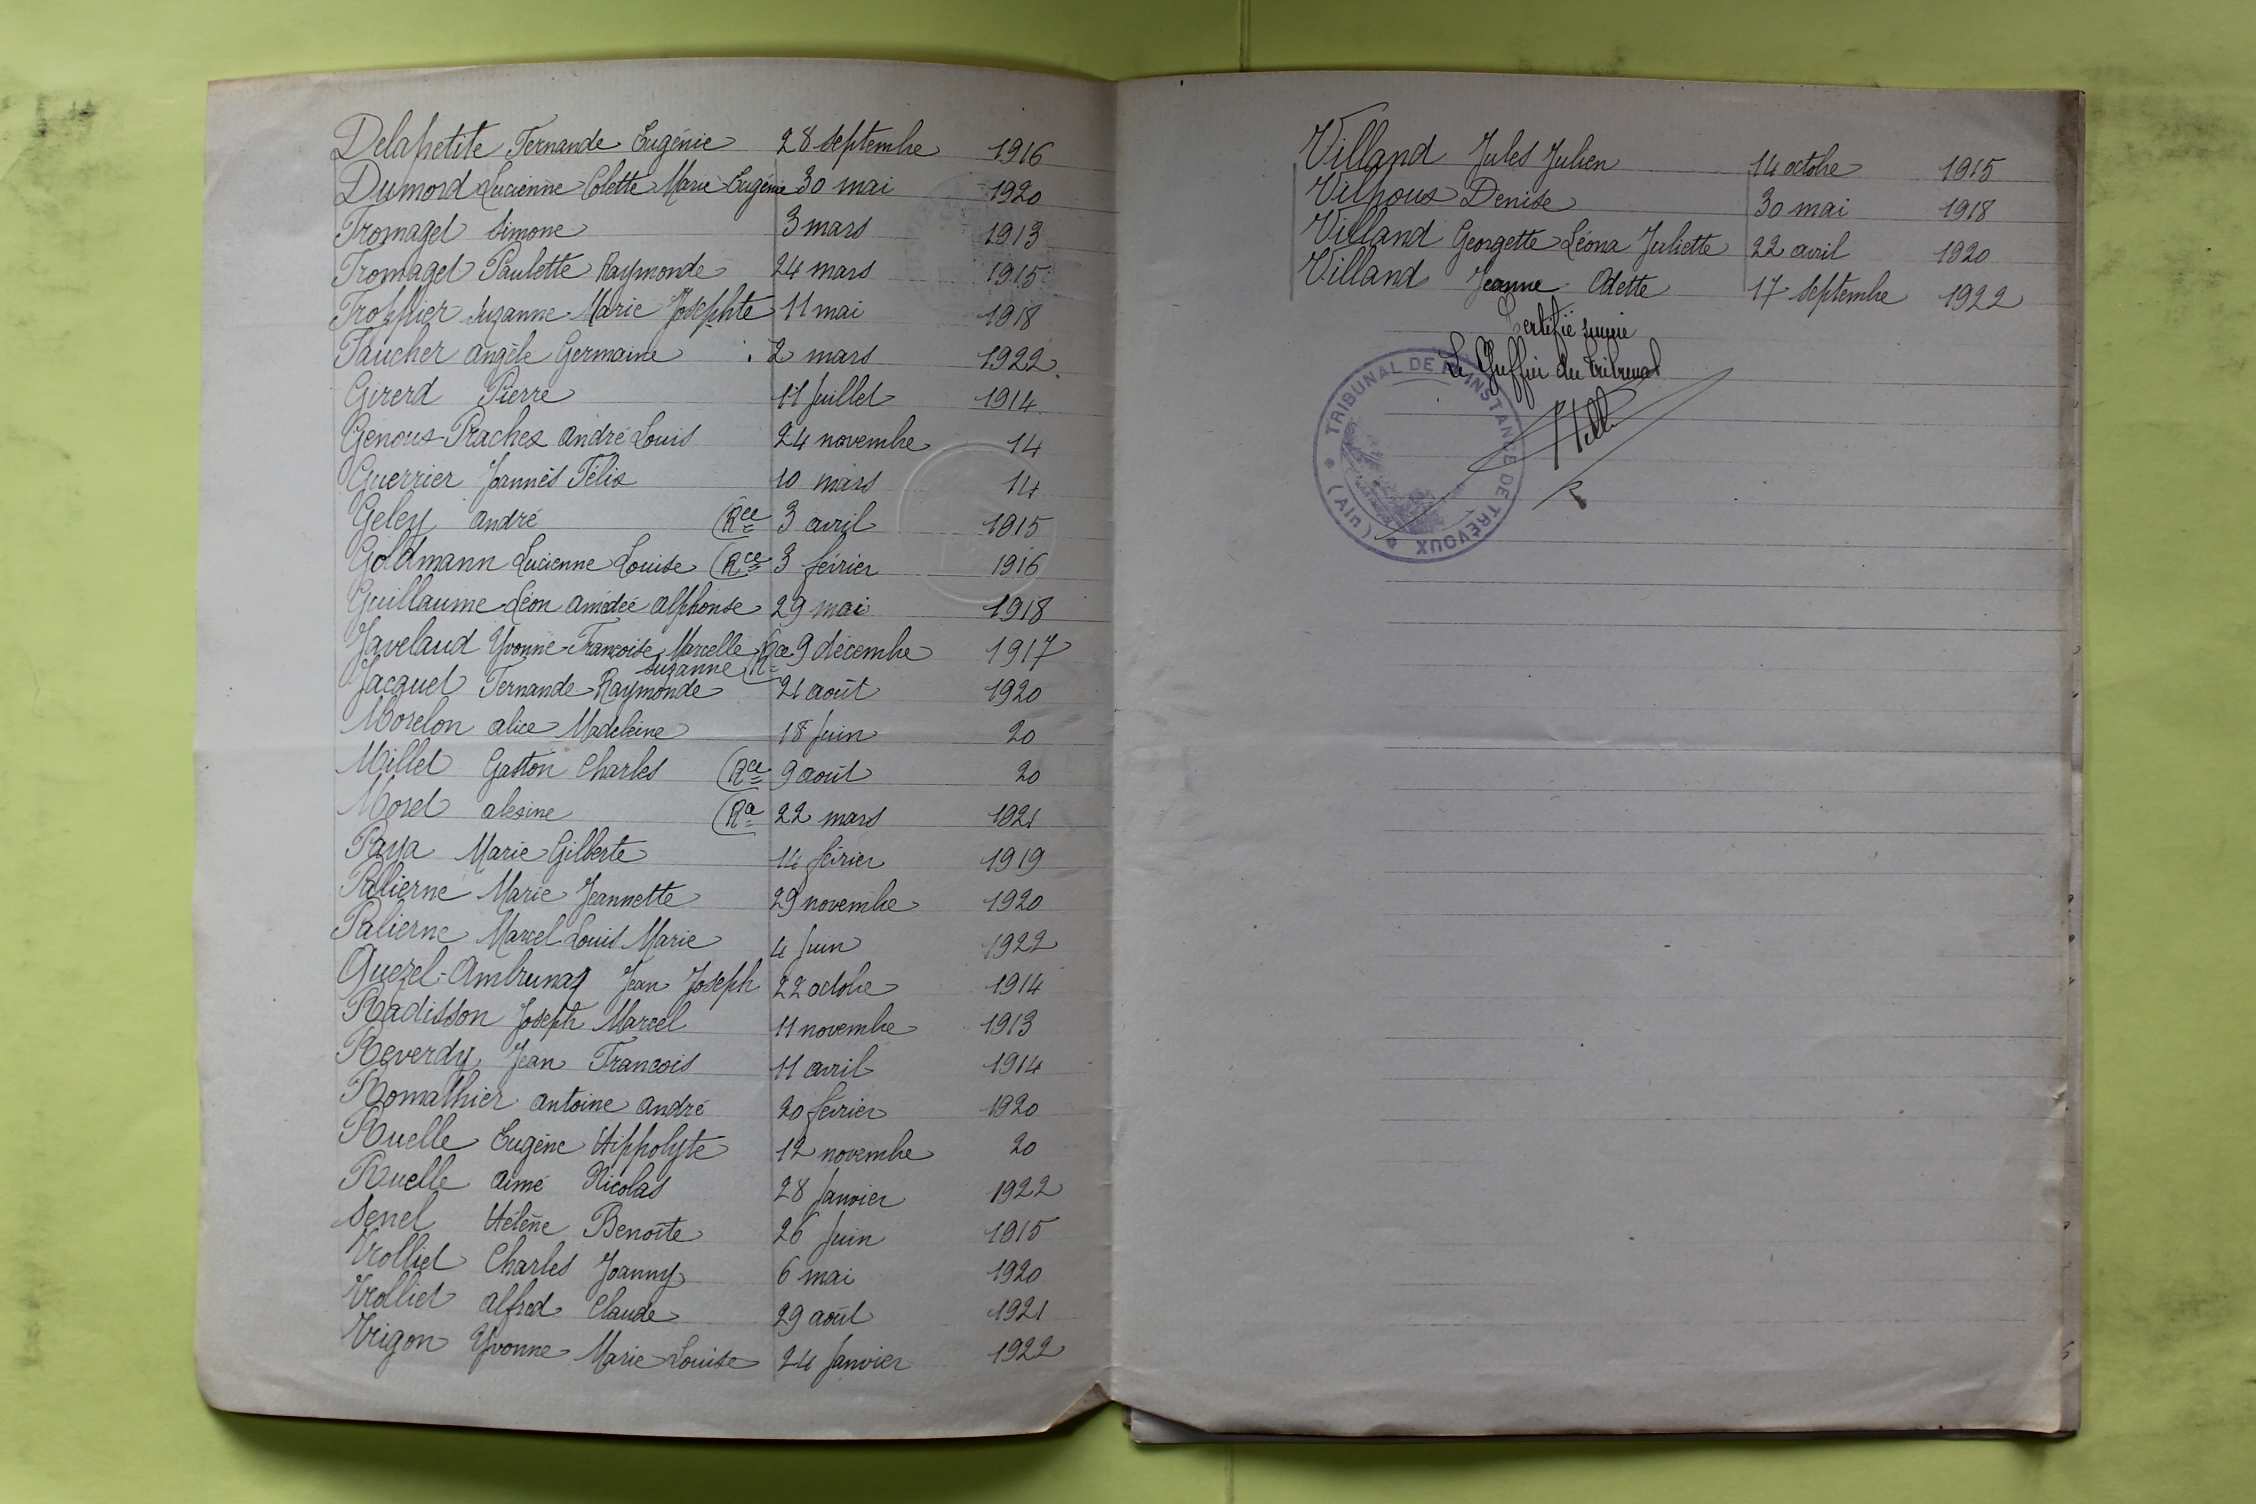 Delapetite Fernande Eugénie 28 septembre 1916
Dumord Lucienne Colette Marie Eugénie 30 mai 1920
Fromagel Simone 3 mars 1913
Fromagel Paulette Raymonde 24 mars 1915
Troppier Suzanne Marie Josephte 11 mai 1918
Faucher Angèle Germaine 2 mars 1922
Girerd Pierre 11 Juillet 1914
Genoux-Prachex André Louis 24 novembre 14
Guerrier Joannès Félix 10 mars 14
Geley André (Rce 3 avril 1915
Goldmann Lucienne Louise (Rce 3 février 1916
Guillaume Léon Amédée Alphonse 29 mai 1918
Javelaud Yvonne Françoise Marcelle 9 décembre 1917
Suzanne (Rce
Jacquet Fernande Raymonde 21 août 1920
Morelon Alice Madeleine 18 Juin 20
Millet Gaston Charles (Rce 9 août 20
Morel Alexine (Rce 22 mars 1921
Paya Marie Gilberte 14 février 1919
Palierne Marie Jeannette 29 novembre 1920
Palierne Marcel Louis Marie 4 Juin 1922
Quezel-Ambrunaz Jean Joseph 22 octobre 1914
Radisson Joseph Marcel 11 novembre 1913
Reverdy Jean François 11 avril 1914
Romathier Antoine André 20 février 1920
Ruelle Eugène Hippolyte 12 novembre 20
Ruelle Aimé Nicolas 28 Janvier 1922
Senel Hélène Benoite 26 Juin 1915
Trolliet Charles Joanny 6 mai 1920
Trolliet Alfred Claude 29 août 1921
Trigon Yvonne Marie Louise 24 Janvier 1922
Villand Jules Julien 14 octobre 1915
Vilhoux Denise 30 mai 1918
Villand Georgette Léona Juliette 22 avril 1920
Villand Jeanne Odette 17 septembre 1922
Certifié
Le Greffier du tribunal
TRIBUNAL DE INSTANCE DE TRÉVOUX (Ain)